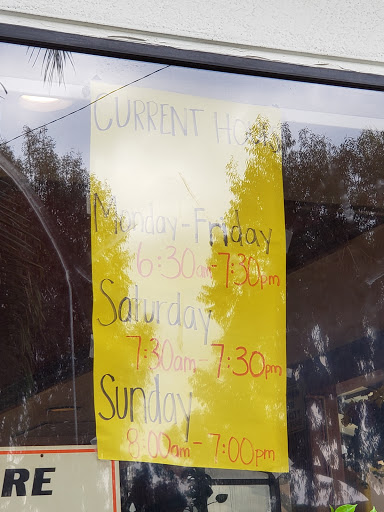 CURRENT HOURS
Monday-Friday
6:30am-7:30pm
Saturday
7:30am-7:30pm
Sunday
8:00am-7:00pm
RE